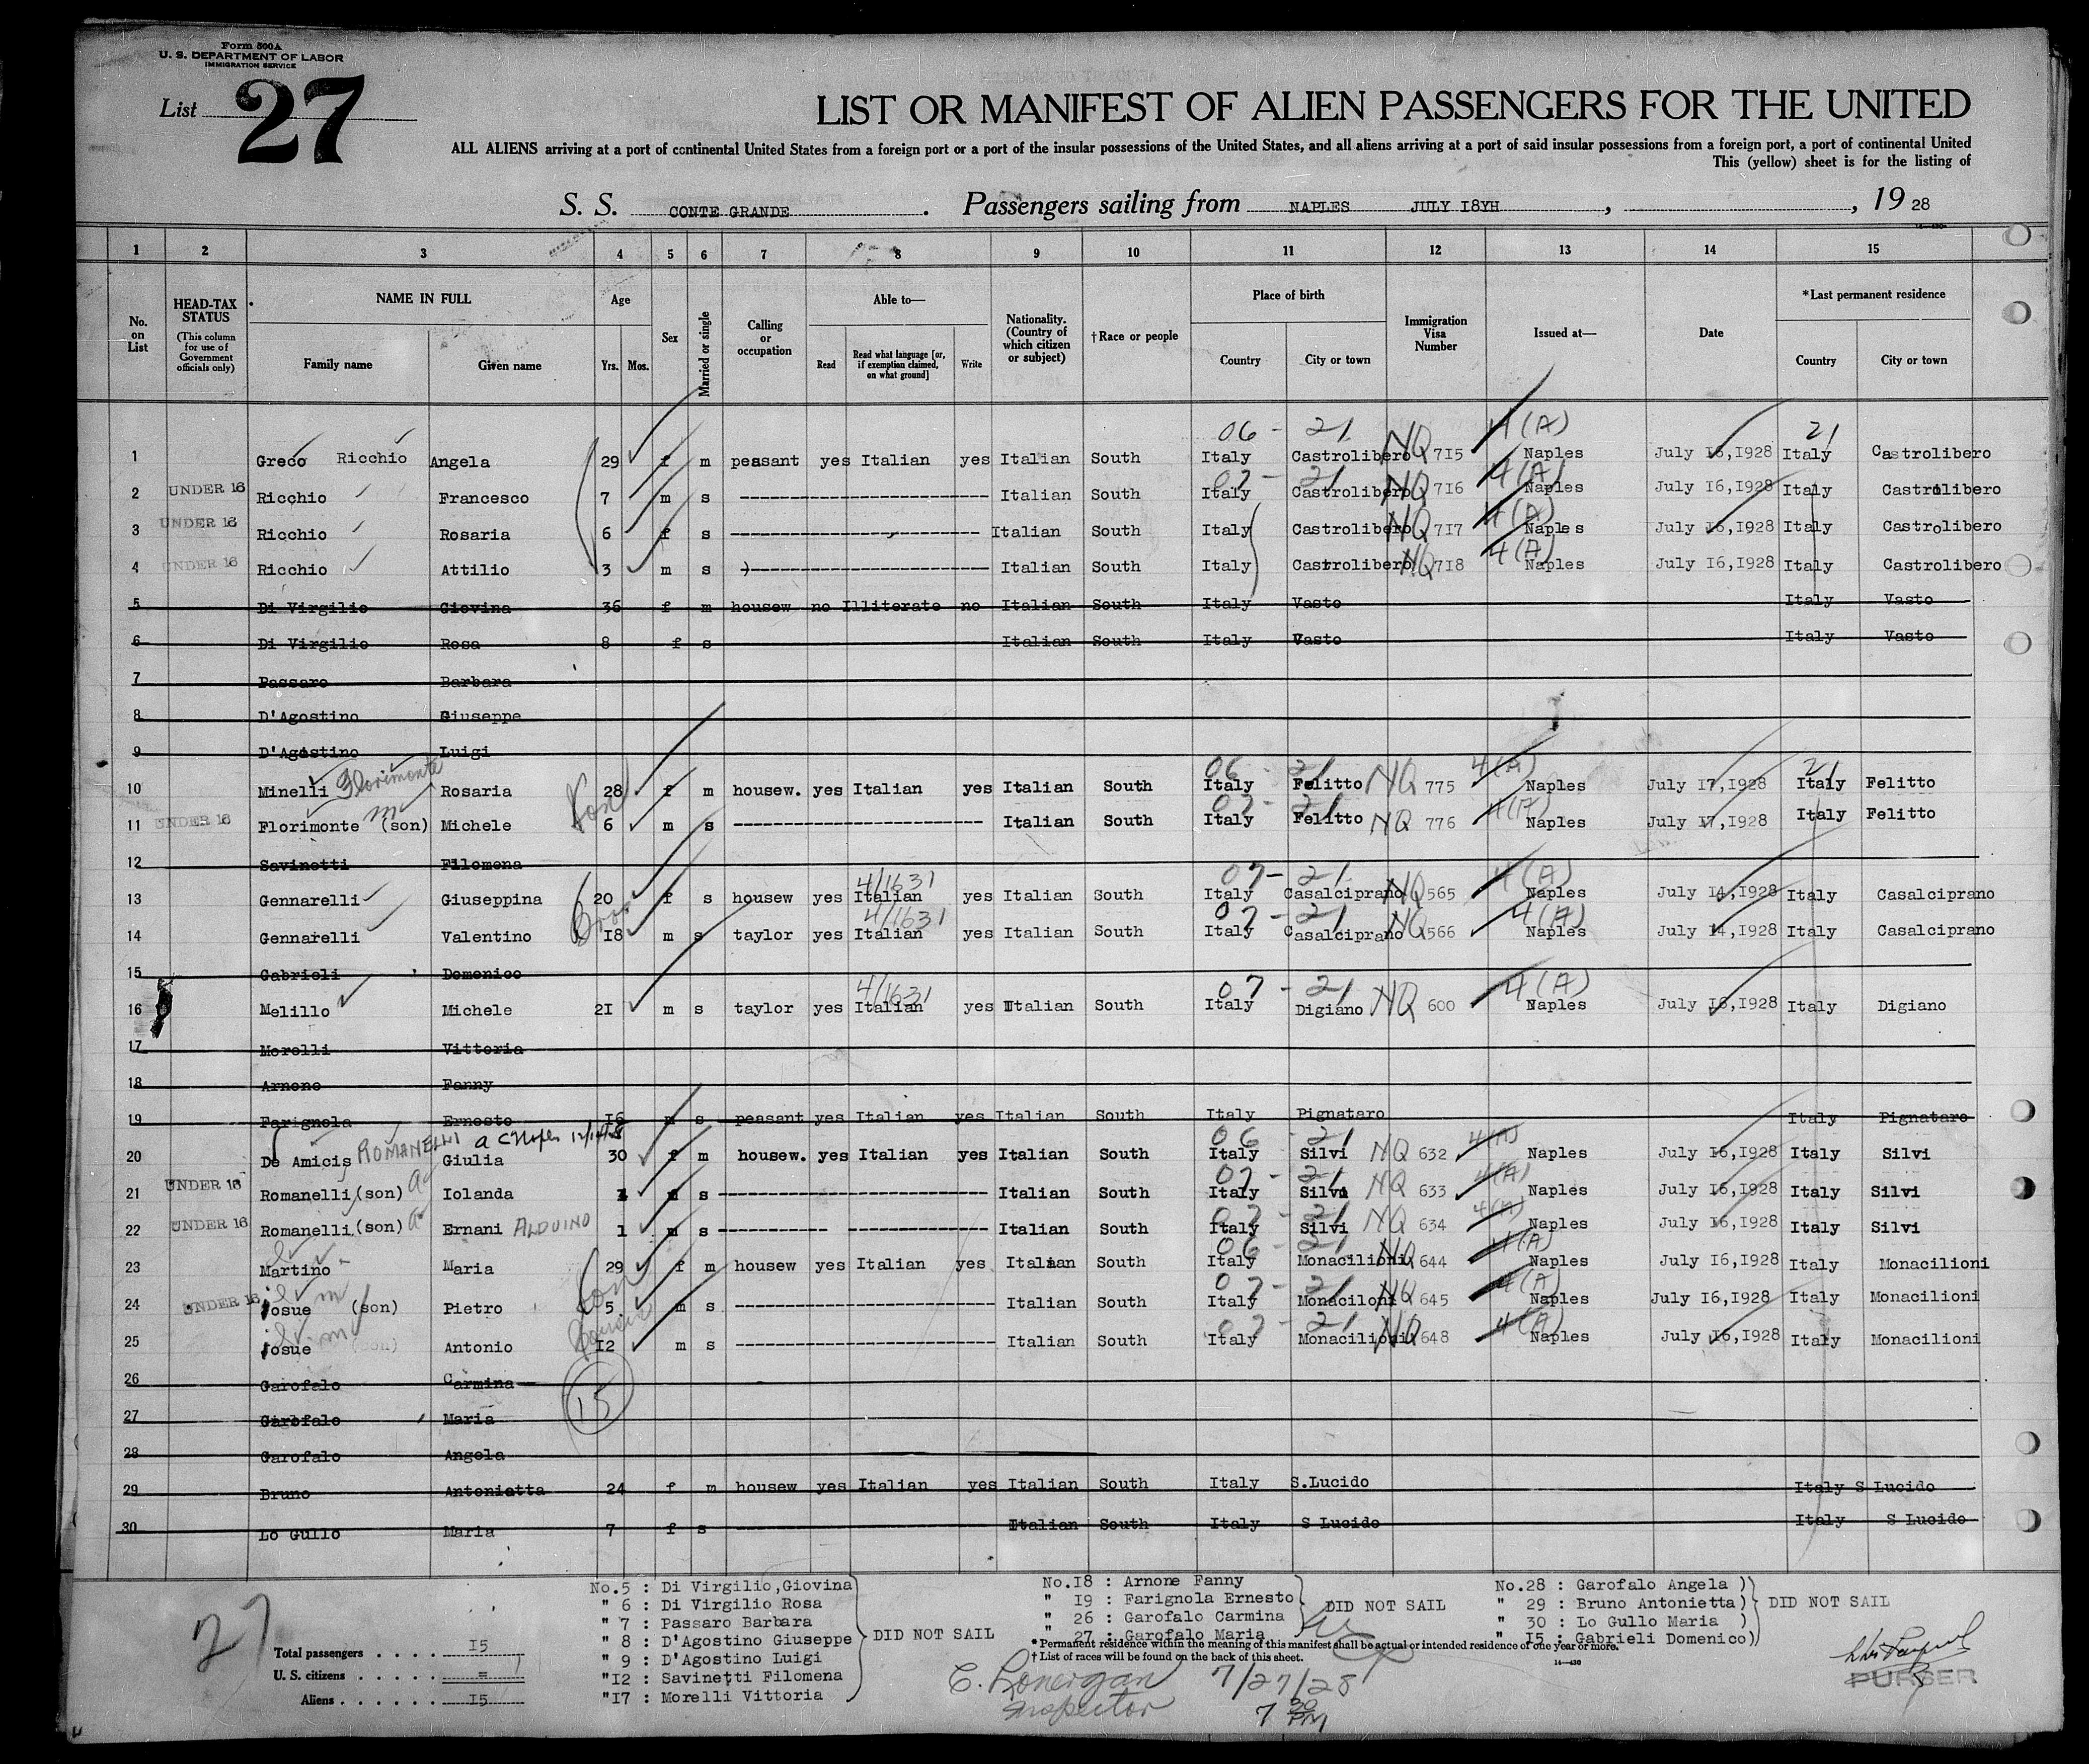 Form 500A
U. S. DEPARTMENT OF LABOR
IMMIGRATION SERVICE
List 27
LIST OR MANIFEST OF ALIEN PASSENGERS FOR THE UNITED
ALL ALIENS arriving at a port of continental United States from a foreign port or a port of the insular possessions of the United States, and all aliens arriving at a port of said insular possessions from a foreign port, a port of continental United
This (yellow) sheet is for the listing of
S. S. CONTE GRANDE. Passengers sailing from NAPLES JULY I8YH, , 19 28
1 2 3 4 5 6 7 8 9 10 11 12 13 14 15
No. on List
HEAD-TAX STATUS
(This column for use of Government officials only)
NAME IN FULL
Family name Given name
Age
Yrs. Mos.
Sex
Married or single
Calling or occupation
Able to—
Read
Read what language [or, if exemption claimed, on what ground]
Write
Nationality. (Country of which citizen or subject)
†Race or people
Place of birth
Country City or town
Immigration Visa Number
Issued at—
Date
*Last permanent residence
Country City or town
06 - 21 4(A) 21
1 Greco Ricchio Angela 29 f m peasant yes Italian yes Italian South Italy Castrolibero NQ 7I5 Naples July I6,I928 Italy Castrolibero
07 - 21 4(A)
2 UNDER 16 Ricchio Francesco 7 m s Italian South Italy Castrolibero NQ 7I6 Naples July I6,I928 Italy Castrilibero
4(A)
3 UNDER 16 Ricchio Rosaria 6 f s Italian South Italy Castrolibero NQ 7I7 Naples July I6,I928 Italy Castrolibero
4(A)
4 UNDER 16 Ricchio Attilio 3 m s Italian South Italy Castrolibero NQ 7I8 Naples July I6,I928 Italy Castrolibero
5 Di Virgilio Giovina 36 f m housew no Illiterate no Italian South Italy Vasto Italy Vasto
6 Di Virgilio Rosa 8 f s Italian South Italy Vasto Italy Vasto
7 Passaro Barbara
8 D'Agostino Giuseppe
9 D'Agostino Luigi
06 - 21 4(A) 21
10 Minelli Florimonte Rosaria 28 f m housew. yes Italian yes Italian South Italy Felitto NQ 775 Naples July I7,I928 Italy Felitto
07 - 21 4(A)
11 UNDER 16 Florimonte (son) m Michele 6 m s Italian South Italy Felitto NQ 776 Naples July I7,I928 Italy Felitto
12 Savinetti Filomena
4/1631 07 - 21 4(A)
13 Gennarelli Giuseppina 20 f s housew yes Italian yes Italian South Italy Casalciprano NQ 565 Naples July I4,I928 Italy Casalciprano
4/1631 07 - 21 4(A)
14 Gennarelli Valentino I8 m s taylor yes Italian yes Italian South Italy Casalciprano NQ 566 Naples July I4,I928 Italy Casalciprano
15 Gabrieli Domenico
4/1631 07 - 21 4(A)
16 Melillo Michele 2I m s taylor yes Italian yes Italian South Italy Digiano NQ 600 Naples July I6,I928 Italy Digiano
17 Morelli Vittoria
18 Arnone Fanny
19 Farignola Ernesto I6 m s peasant yes Italian yes Italian South Italy Pignataro Italy Pignataro
06 - 21 4(A)
20 De Amicis ROMANELLI Giulia 30 f m housew. yes Italian yes Italian South Italy Silvi NQ 632 Naples July I6,I928 Italy Silvi
07 - 21 4(A)
21 UNDER 16 Romanelli (son) Iolanda s Italian South Italy Silvi NQ 633 Naples July I6,I928 Italy Silvi
07 - 21 4(A)
22 UNDER 16 Romanelli (son) Ernani ALDUINO 1 m s Italian South Italy Silvi NQ 634 Naples July I6,I928 Italy Silvi
06 - 21 4(A)
23 Martino Maria 29 f m housew yes Italian yes Italian South Italy Monacilioni NQ 644 Naples July I6,I928 Italy Monacilioni
07 - 21 4(A)
24 UNDER 16 Josue (son) Pietro 5 m s Italian South Italy Monaciloni NQ 645 Naples July I6,I928 Italy Monacilioni
07 - 21 4(A)
25 Josue (son) Antonio I2 m s Italian South Italy Monacilioni NQ 648 Naples July I6,I928 Italy Monacilioni
26 Garofalo Carmina
15
27 Garofalo Maria
28 Garofalo Angela
29 Bruno Antonietta 24 f m housew yes Italian yes Italian South Italy S.Lucido Italy S Lucido
30 Lo Gullo Maria 7 f s Italian South Italy S Lucido Italy S Lucido
27
Total passengers . . . . I5
U. S. citizens . . . . . =
Aliens . . . . . . I5
No.5 : Di Virgilio,Giovina
" 6 : Di Virgilio Rosa
" 7 : Passaro Barbara
" 8 : D'Agostino Giuseppe
" 9 : D'Agostino Luigi
"I2 : Savinetti Filomena
"I7 : Morelli Vittoria
DID NOT SAIL
No.I8 : Arnone Fanny
" I9 : Farignola Ernesto
" 26 : Garofalo Carmina
" 27 : Garofalo Maria
DID NOT SAIL
No.28 : Garofalo Angela )
" 29 : Bruno Antonietta)
" 30 : Lo Gullo Maria )
" I5 : Gabrieli Domenico)
DID NOT SAIL
* Permanent residence within the meaning of this manifest shall be actual or intended residence of one year or more.
† List of races will be found on the back of this sheet.
14—430
C. Lonergan 7/27/28
Inspector 7 30 PM
PURSER